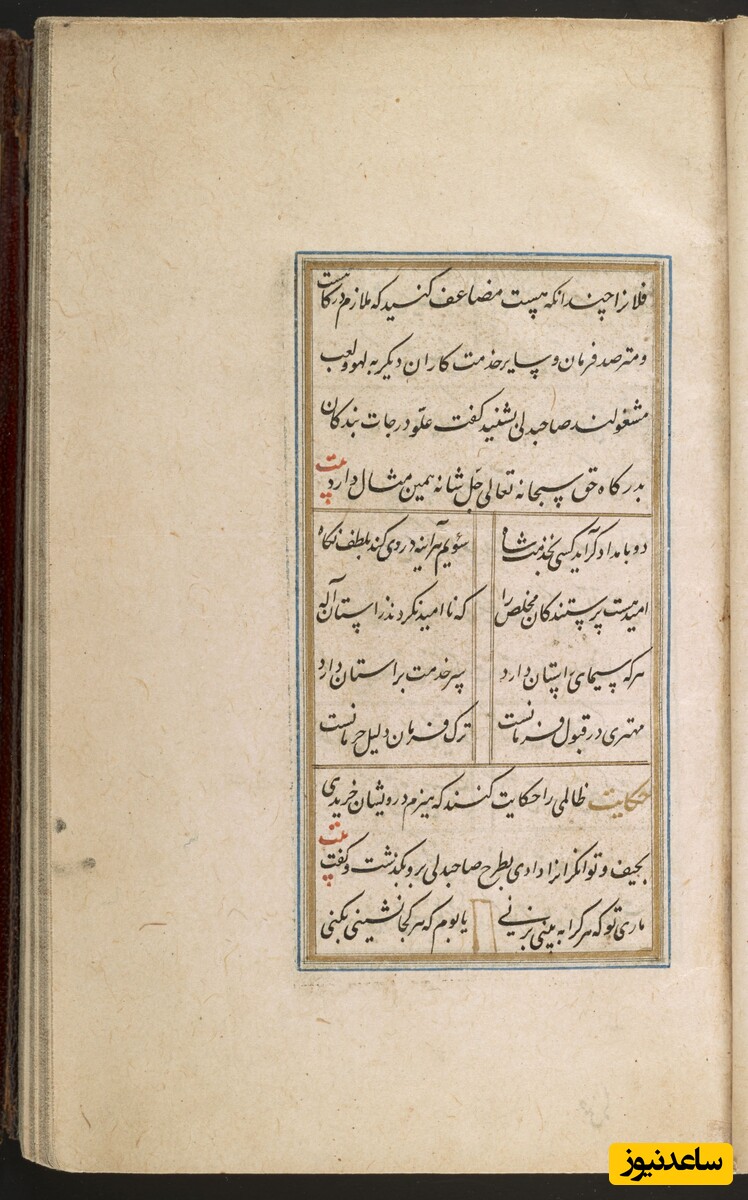 فلانرا چندانکه هست مضاعف کنید که ملازم درگاهست
و مترصد فرمان و سایر خدمت کاران دیگر به لهو و لعب
مشغولند صاحبدلی بشنید گفت علو درجات بندگان
بدرگاه حق سبحانه تعالی جل شانه همین مثال دارد بیت
دو بامداد گر آید کسی بخدمت شاه سئویم هر آینه در وی کند بلطف نگاه
امید هست پرستندگان مخلص را که ناامید نگردند ز آستان آله
هر که سیمای راستان دارد سر خدمت بر آستان دارد
مهتری در قبول فرمانست ترک فرمان دلیل حرمانست
حکایت ظالمی را حکایت کنند که هیزم درویشان خریدی
بحیف و توانگرانرا دادی بطرح صاحبدلی برو بگذشت و گفت بیت
ماری تو که هر کرا به بینی بزنی یا بوم که هر کجا نشینی بکنی
ساعدنیوز